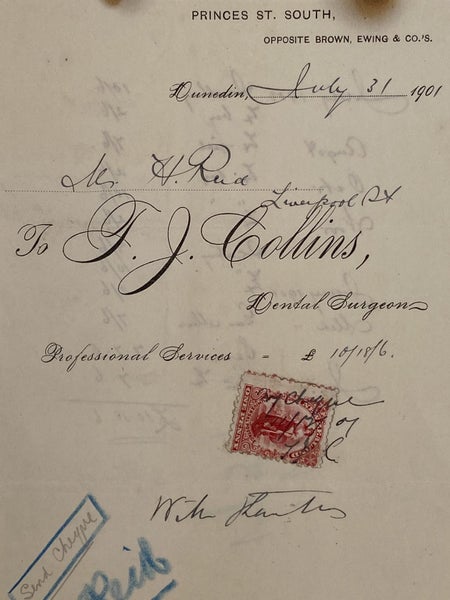 PRINCES ST. SOUTH,
OPPOSITE BROWN, EWING & CO.'S.
Dunedin, July 31 1901
Mr H. Reid
Liverpool St
To F. J. Collins,
Dental Surgeon
Professional Services - £ 10/18/6.
By Cheque
With Thanks
Send Cheque
Reid